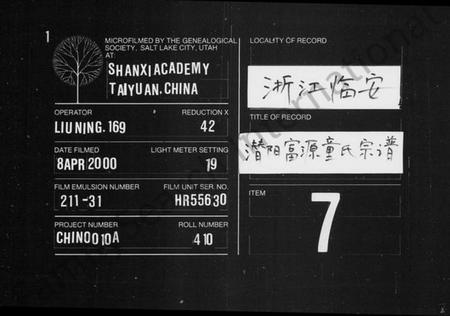 1
MICROFILMED BY THE GENEALOGICAL
SOCIETY, SALT LAKE CITY, UTAH
AT:
SHANXI ACADEMY
TAIYUAN, CHINA
OPERATOR
REDUCTION X
LIU NING. 169
42
DATE FILMED
LIGHT METER SETTING
8 APR 2000
19
FILM EMULSION NUMBER
FILM UNIT SER. NO.
211-31
HR55630
PROJECT NUMBER
ROLL NUMBER
CHINO010A
410
LOCALITY OF RECORD
浙江临安
TITLE OF RECORD
潜阳富源童氏宗谱
ITEM
7